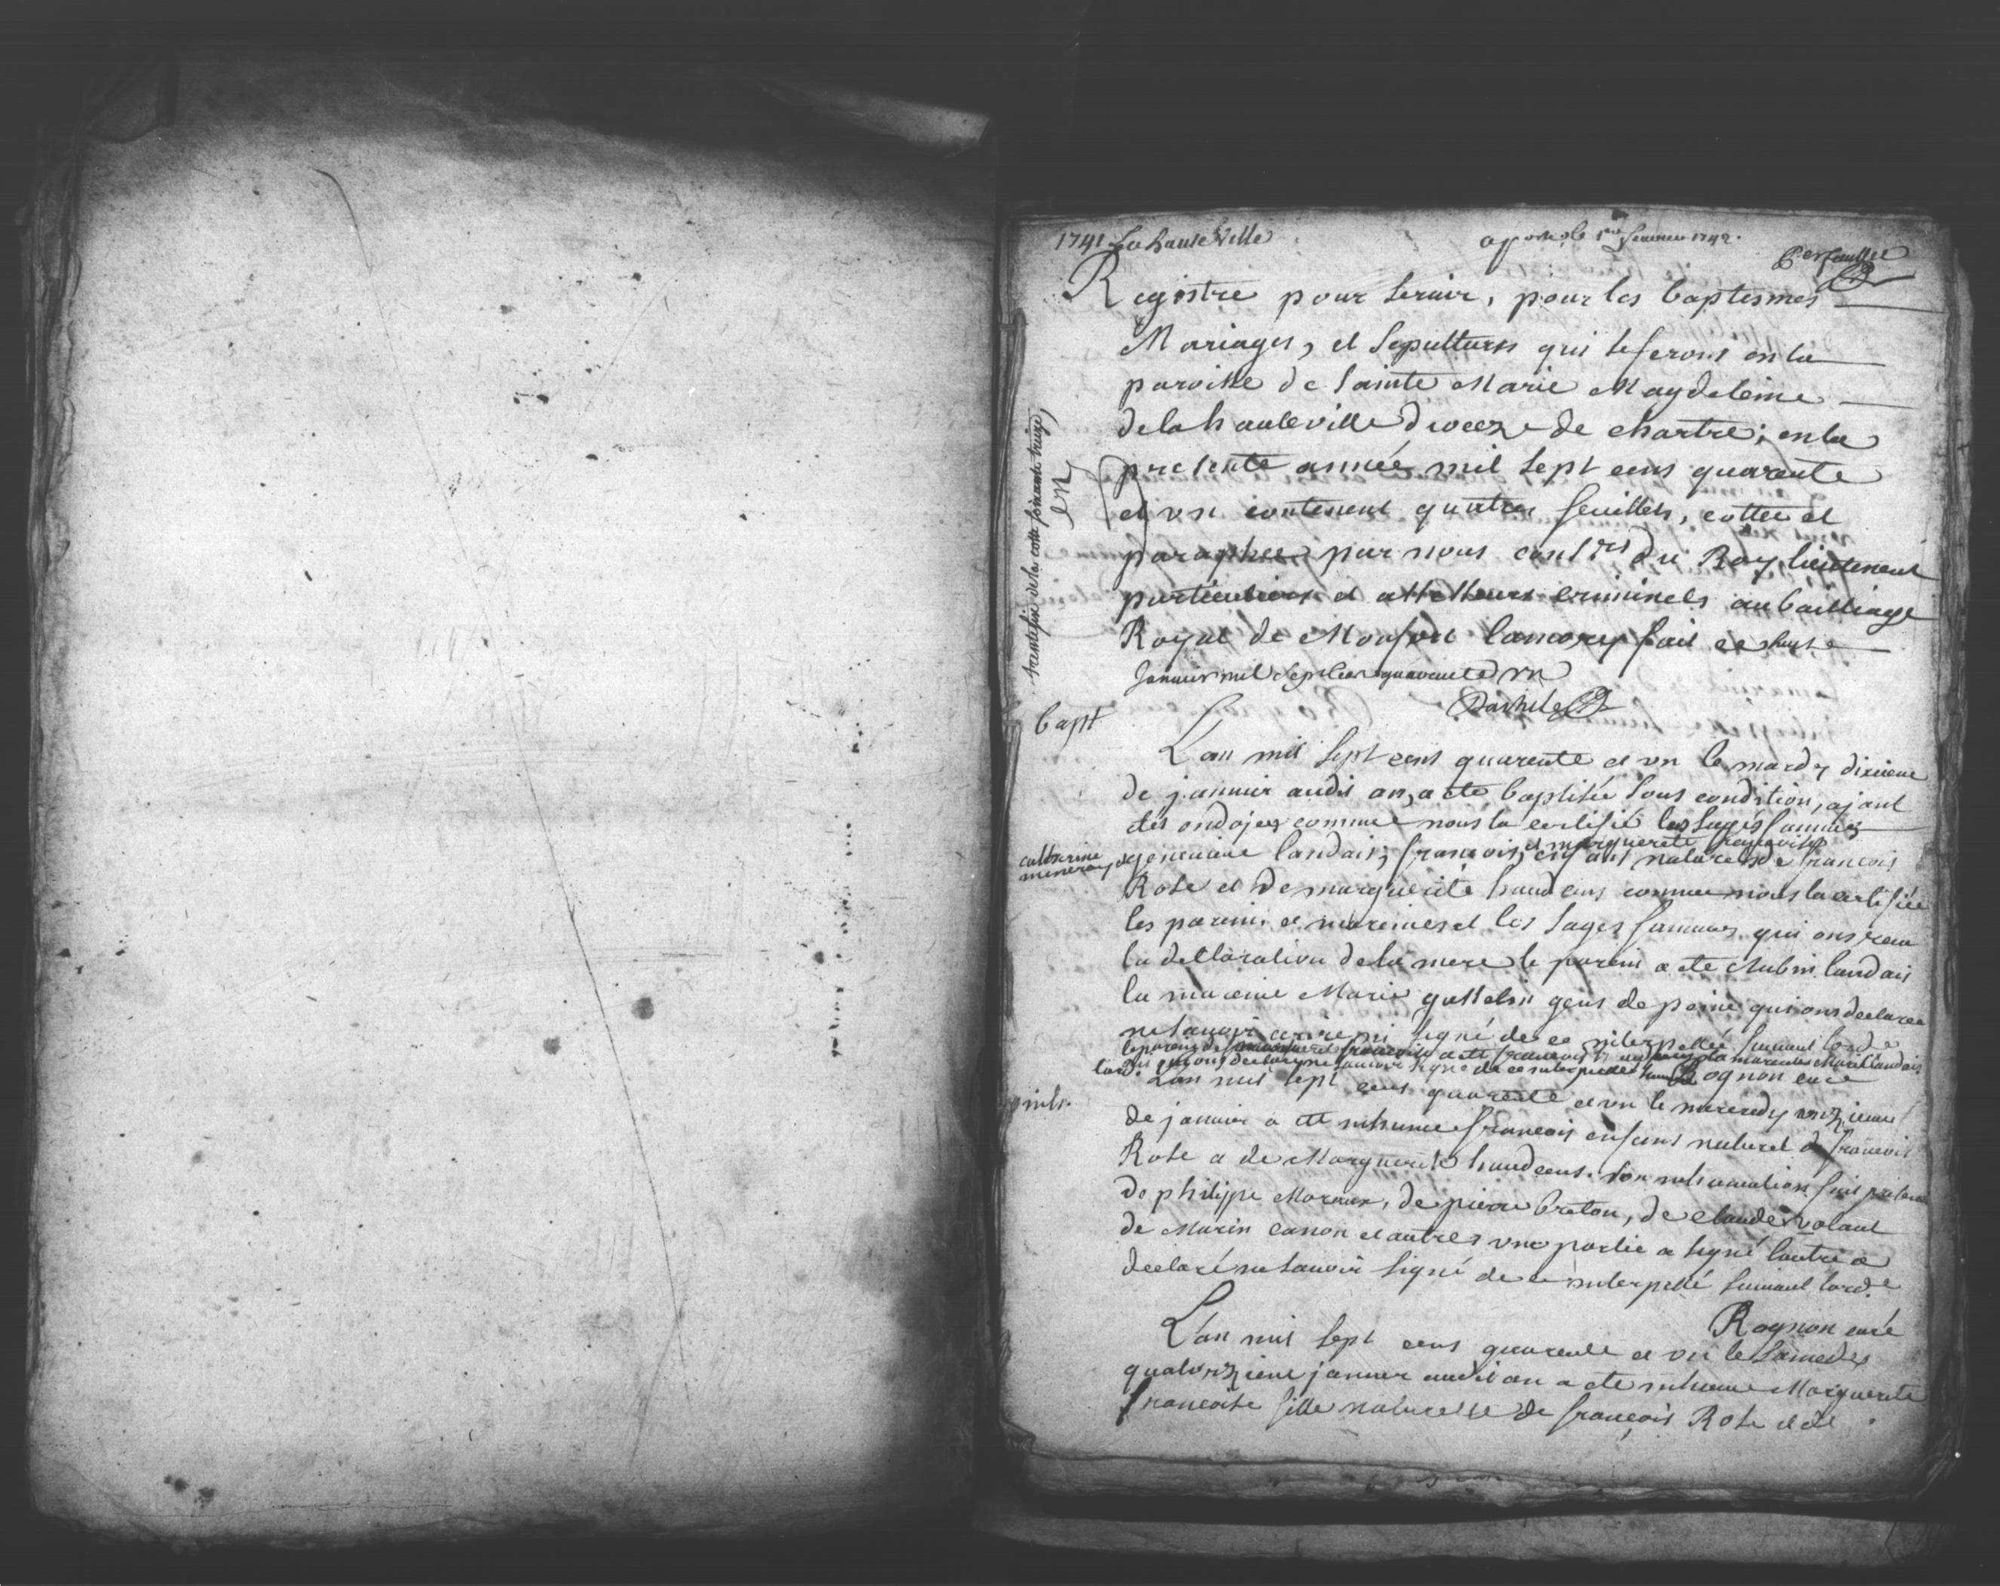 1741 La hauteVille
aporté le 1er feurier 1742.
Registre pour seruir, pour les baptesmes
Mariages, et sepultures qui se feront en la
paroisse de sainte Marie Magdeleine
de la hauteville dioceze de chartre; en la
presente année mil sept cens quarente
et vn contenent quatre feuillets, cottee et
paraphee par nous conser du Roy lieutenent
particuliers et assesseurs criminels au bailliage
Royal de Monfort Lamory fait ce huit
Januier mil sept cent quarente et vn
bapt
L'an mil sept cens quarente et vn le mardy dixieme
de januier audit an, a ete baptisée sous condition, ajant
etes ondojez comme nous la certifié les sages fammes
catherine
geneuieve landais, francois, et marguerite francoise enfans naturels de francois
Rose et de marguerite haudcens comme nous la certifiée
les parein et mareines et les sages fammes qui ons receu
la declaration de la mere le parein a ete Aubin landais
la mareine Marie gens de peine qui ons declarée
ne sauoir ecrire ni signé de ce interpellé suiuant lorde
Rognon curé
inh.
L'an mil sept cens quarente et vn le mecredy vnzieme
de januier a ete inhumé francois enfans naturel de francois
Rose et de Marguerite haudcens. son inhumation fait presence
de philippe Moreau, de pierre breton, de claude volant
de Marin canon et autres vne partie a signé lautre a
declaré ne sauoir signé de ce interpellé suiuant lord.e
Rognon curé
L'an mil sept cens quarente et vn le samedes
quatorzieme januier audit an a ete inhumé Marguerite
francoise fille naturelle de francois Rose et de